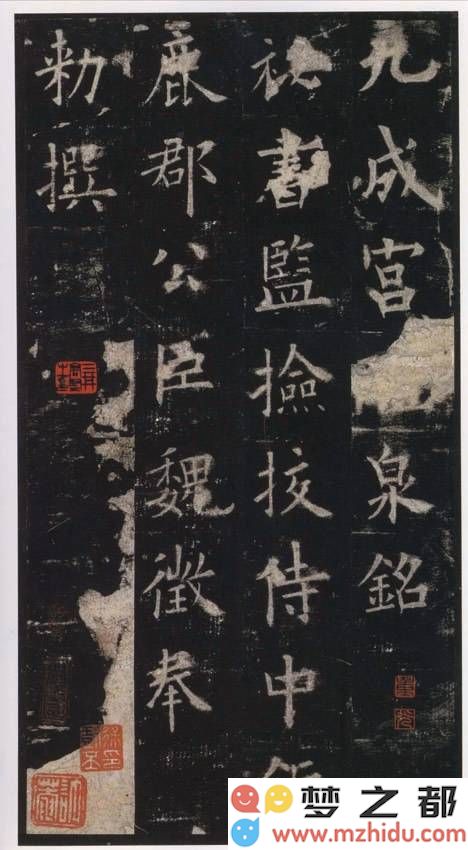 九成宮泉銘
祕書監撿挍侍中
鹿郡公臣魏徵奉
勅撰
梦之都
www.mzhidu.com